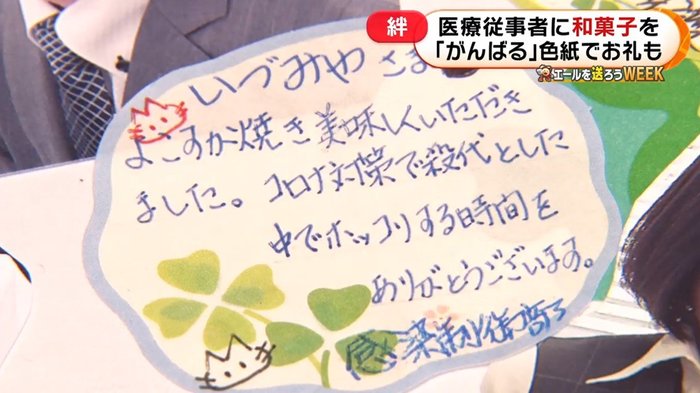 絆
医療従事者に和菓子を
「がんばる」色紙でお礼も
エールを送ろうWEEK
いづみやさま
よこすか焼き美味しくいただき
ました。コロナ対策で殺伐とした
中でホッコリする時間を
ありがとうございます。